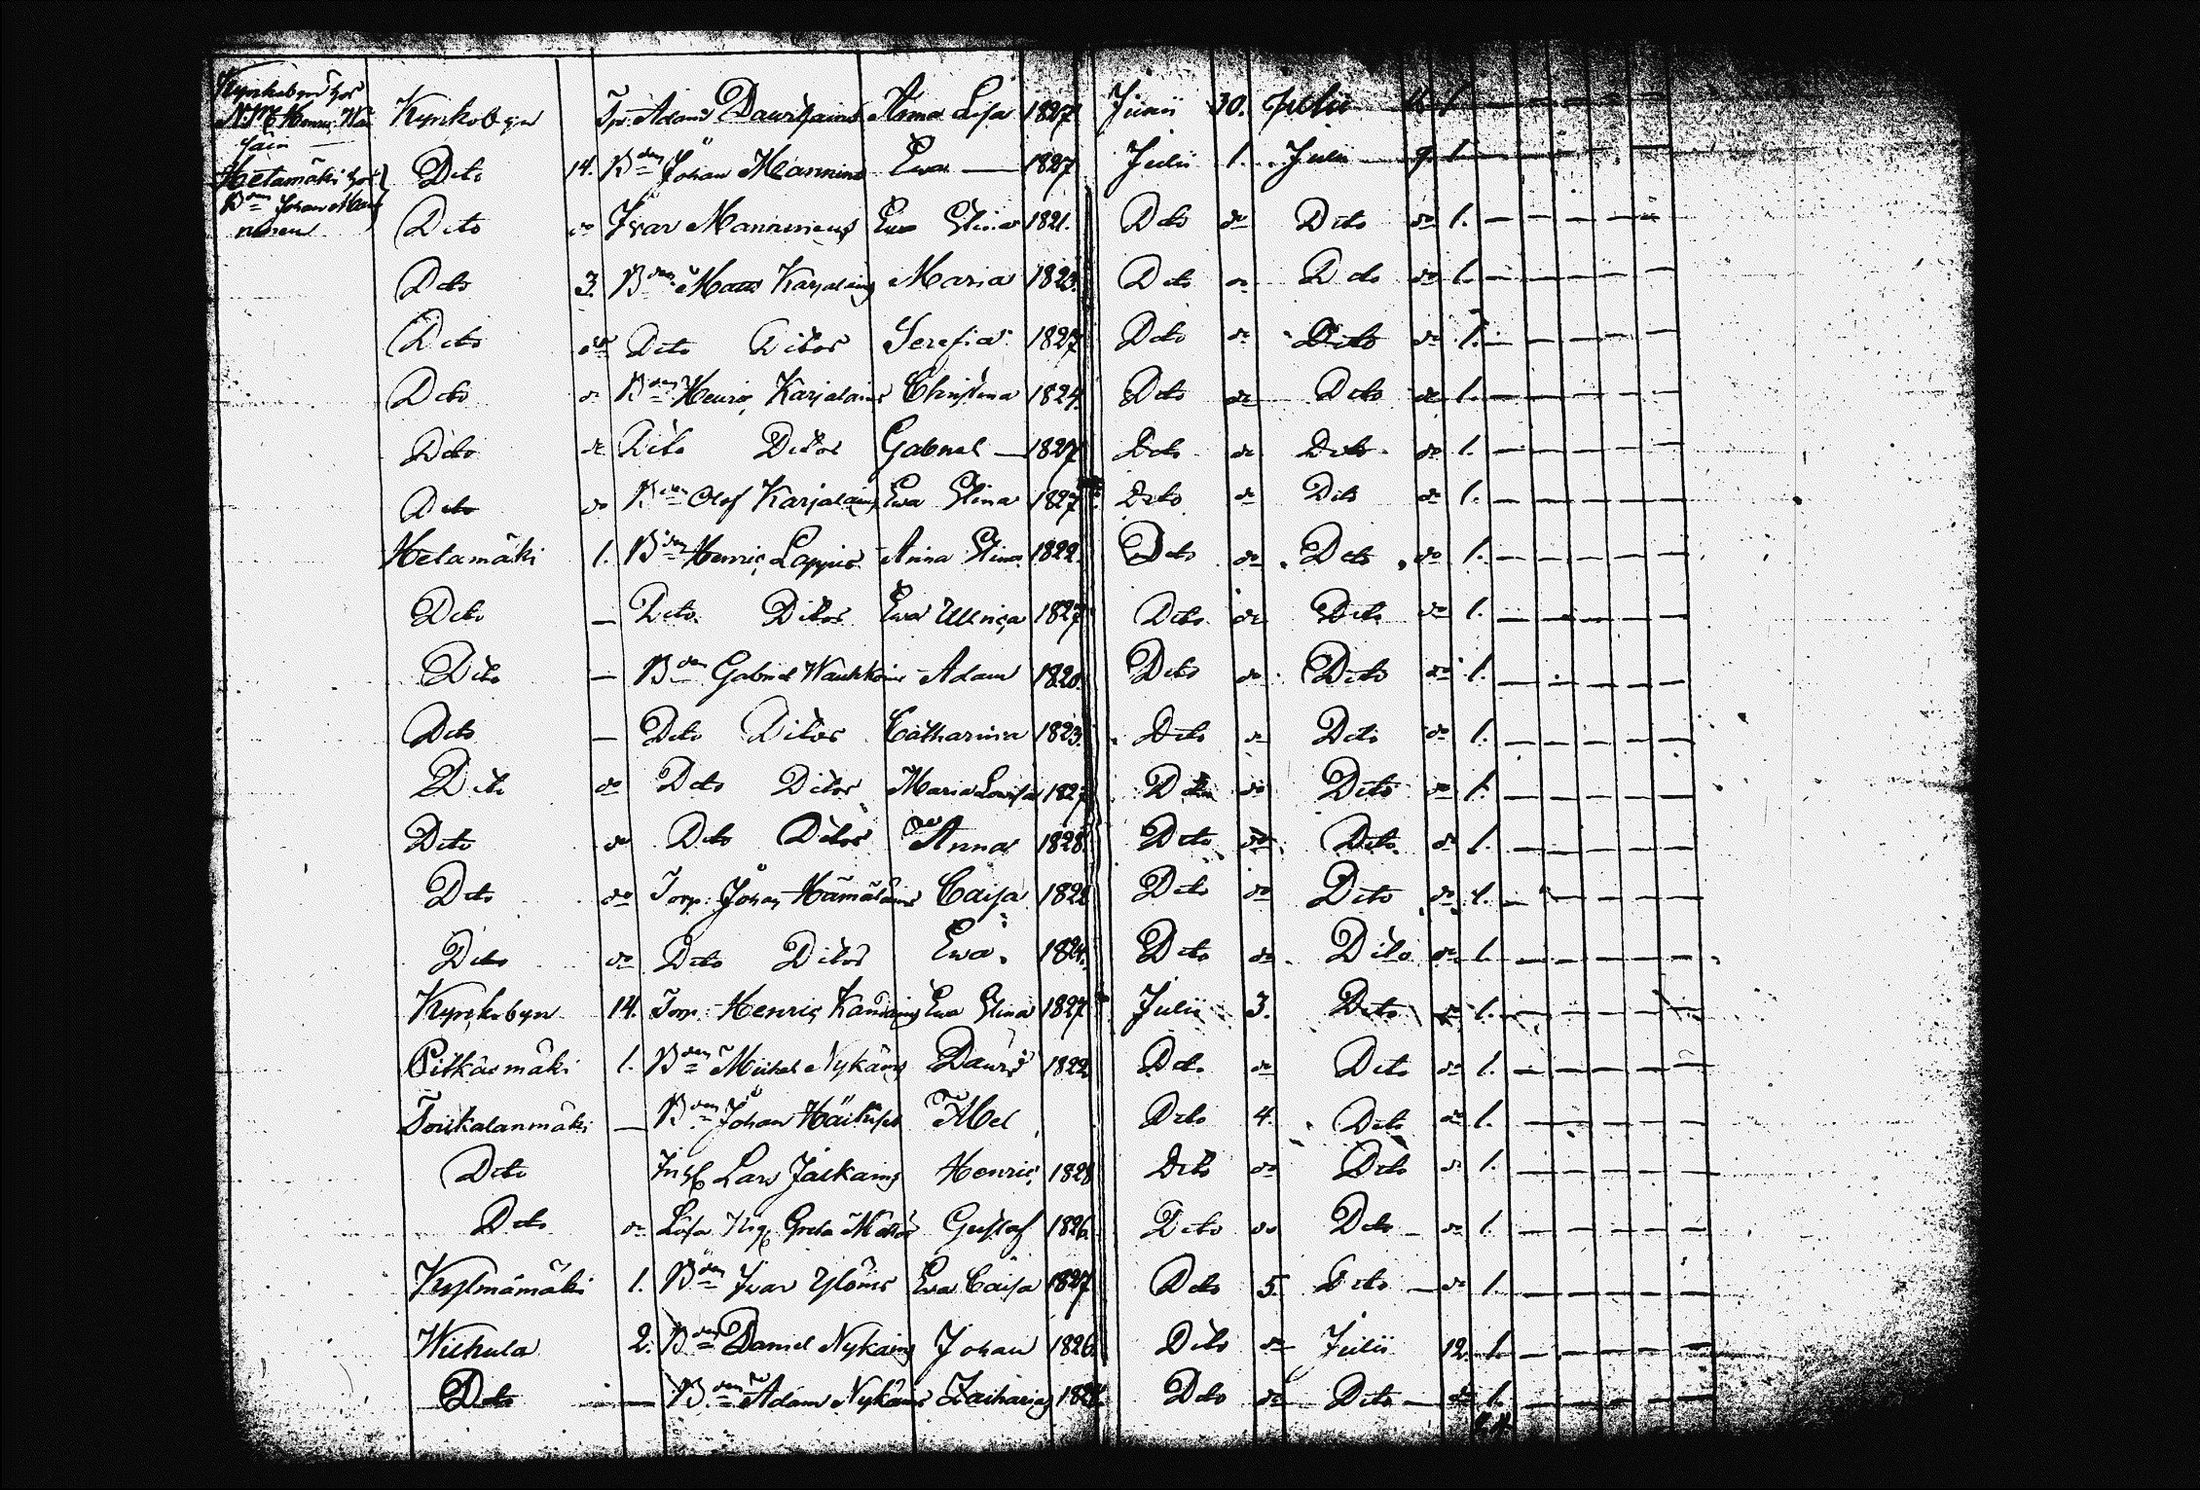 Kynkobyn hos
Kynkobyn Tp. Adam Dawidsains Anna Lisa 1827 Junii 30. Julii 1 — — — — —
Hetamäki hos Dito 14. Bden Johan Mannins Ewa — 1827 Julii 1. Julii 9. 1. — — — — —
Bden Johan Man
ninen Dito do Ivar Manninens Ewa Stina 1821. Dito do Dito do 1. — — — — —
Dito 3. Bden Matts Karjalains Maria 1823. Dito do Dito do 1. — — — — —
Dito do Dito Ditos Serefia 1827 Dito do Dito do 1. — — — — —
Dito do Bden Henric Karjalains Christina 1824. Dito do Dito do 1. — — — — —
Dito do Dito Ditos Gabriel — 1827 Dito do Dito do 1. — — — — —
Dito do Bden Olof Karjalains Ewa Stina 1827 Dito do Dito do 1. — — — — —
Hetamäki 1. Bden Henric Lappis Anna Stina 1822. Dito do Dito do 1. — — — — —
Dito — Dito Ditos Ewa Ulrica 1827 Dito do Dito do 1. — — — — —
Dito — Bden Gabriel Adam 1820. Dito do Dito do 1. — — — — —
Dito — Dito Ditos Catharina 1823. Dito do Dito do 1. — — — — —
Dito do Dito Ditos Maria Lovisa 1827 Dito do Dito do 1. — — — — —
Dito do Dito Ditos Anna 1828. Dito do Dito do 1. — — — — —
Dito do Torp. Johan Hämäläins Caisa 1822 Dito do Dito do 1. — — — — —
Dito do Dito Ditos Ewa 1824. Dito do Dito do 1. — — — — —
Kynkobyn 14. Torp. Henric Ewa Stina 1827 Julii 3. Dito do 1. — — — — —
Pitkäsmäki 1. Bden Michel Nykäns David 1822 Dito do Dito do 1. — — — — —
Toukalanmäki — Bden Johan Abel Dito 4. Dito do 1. — — — — —
Dito Inh Lars Henric 1828 Dito do Dito do 1. — — — — —
Dito do Lösa Greta Gustaf 1826. Dito do Dito — do 1. — — — — —
Kylmämäki 1. Bden Ivar Ylöins Ewa Caisa 1827 Dito 5. Dito — do 1. — — — — —
Wiehula 2. Bden Daniel Nykäins Johan 1826. Dito do Julii 12. 1. — — — — —
Dito — Bden Adam Nykäins Zacharias Dito do Dito — do 1. — — — — —
24.